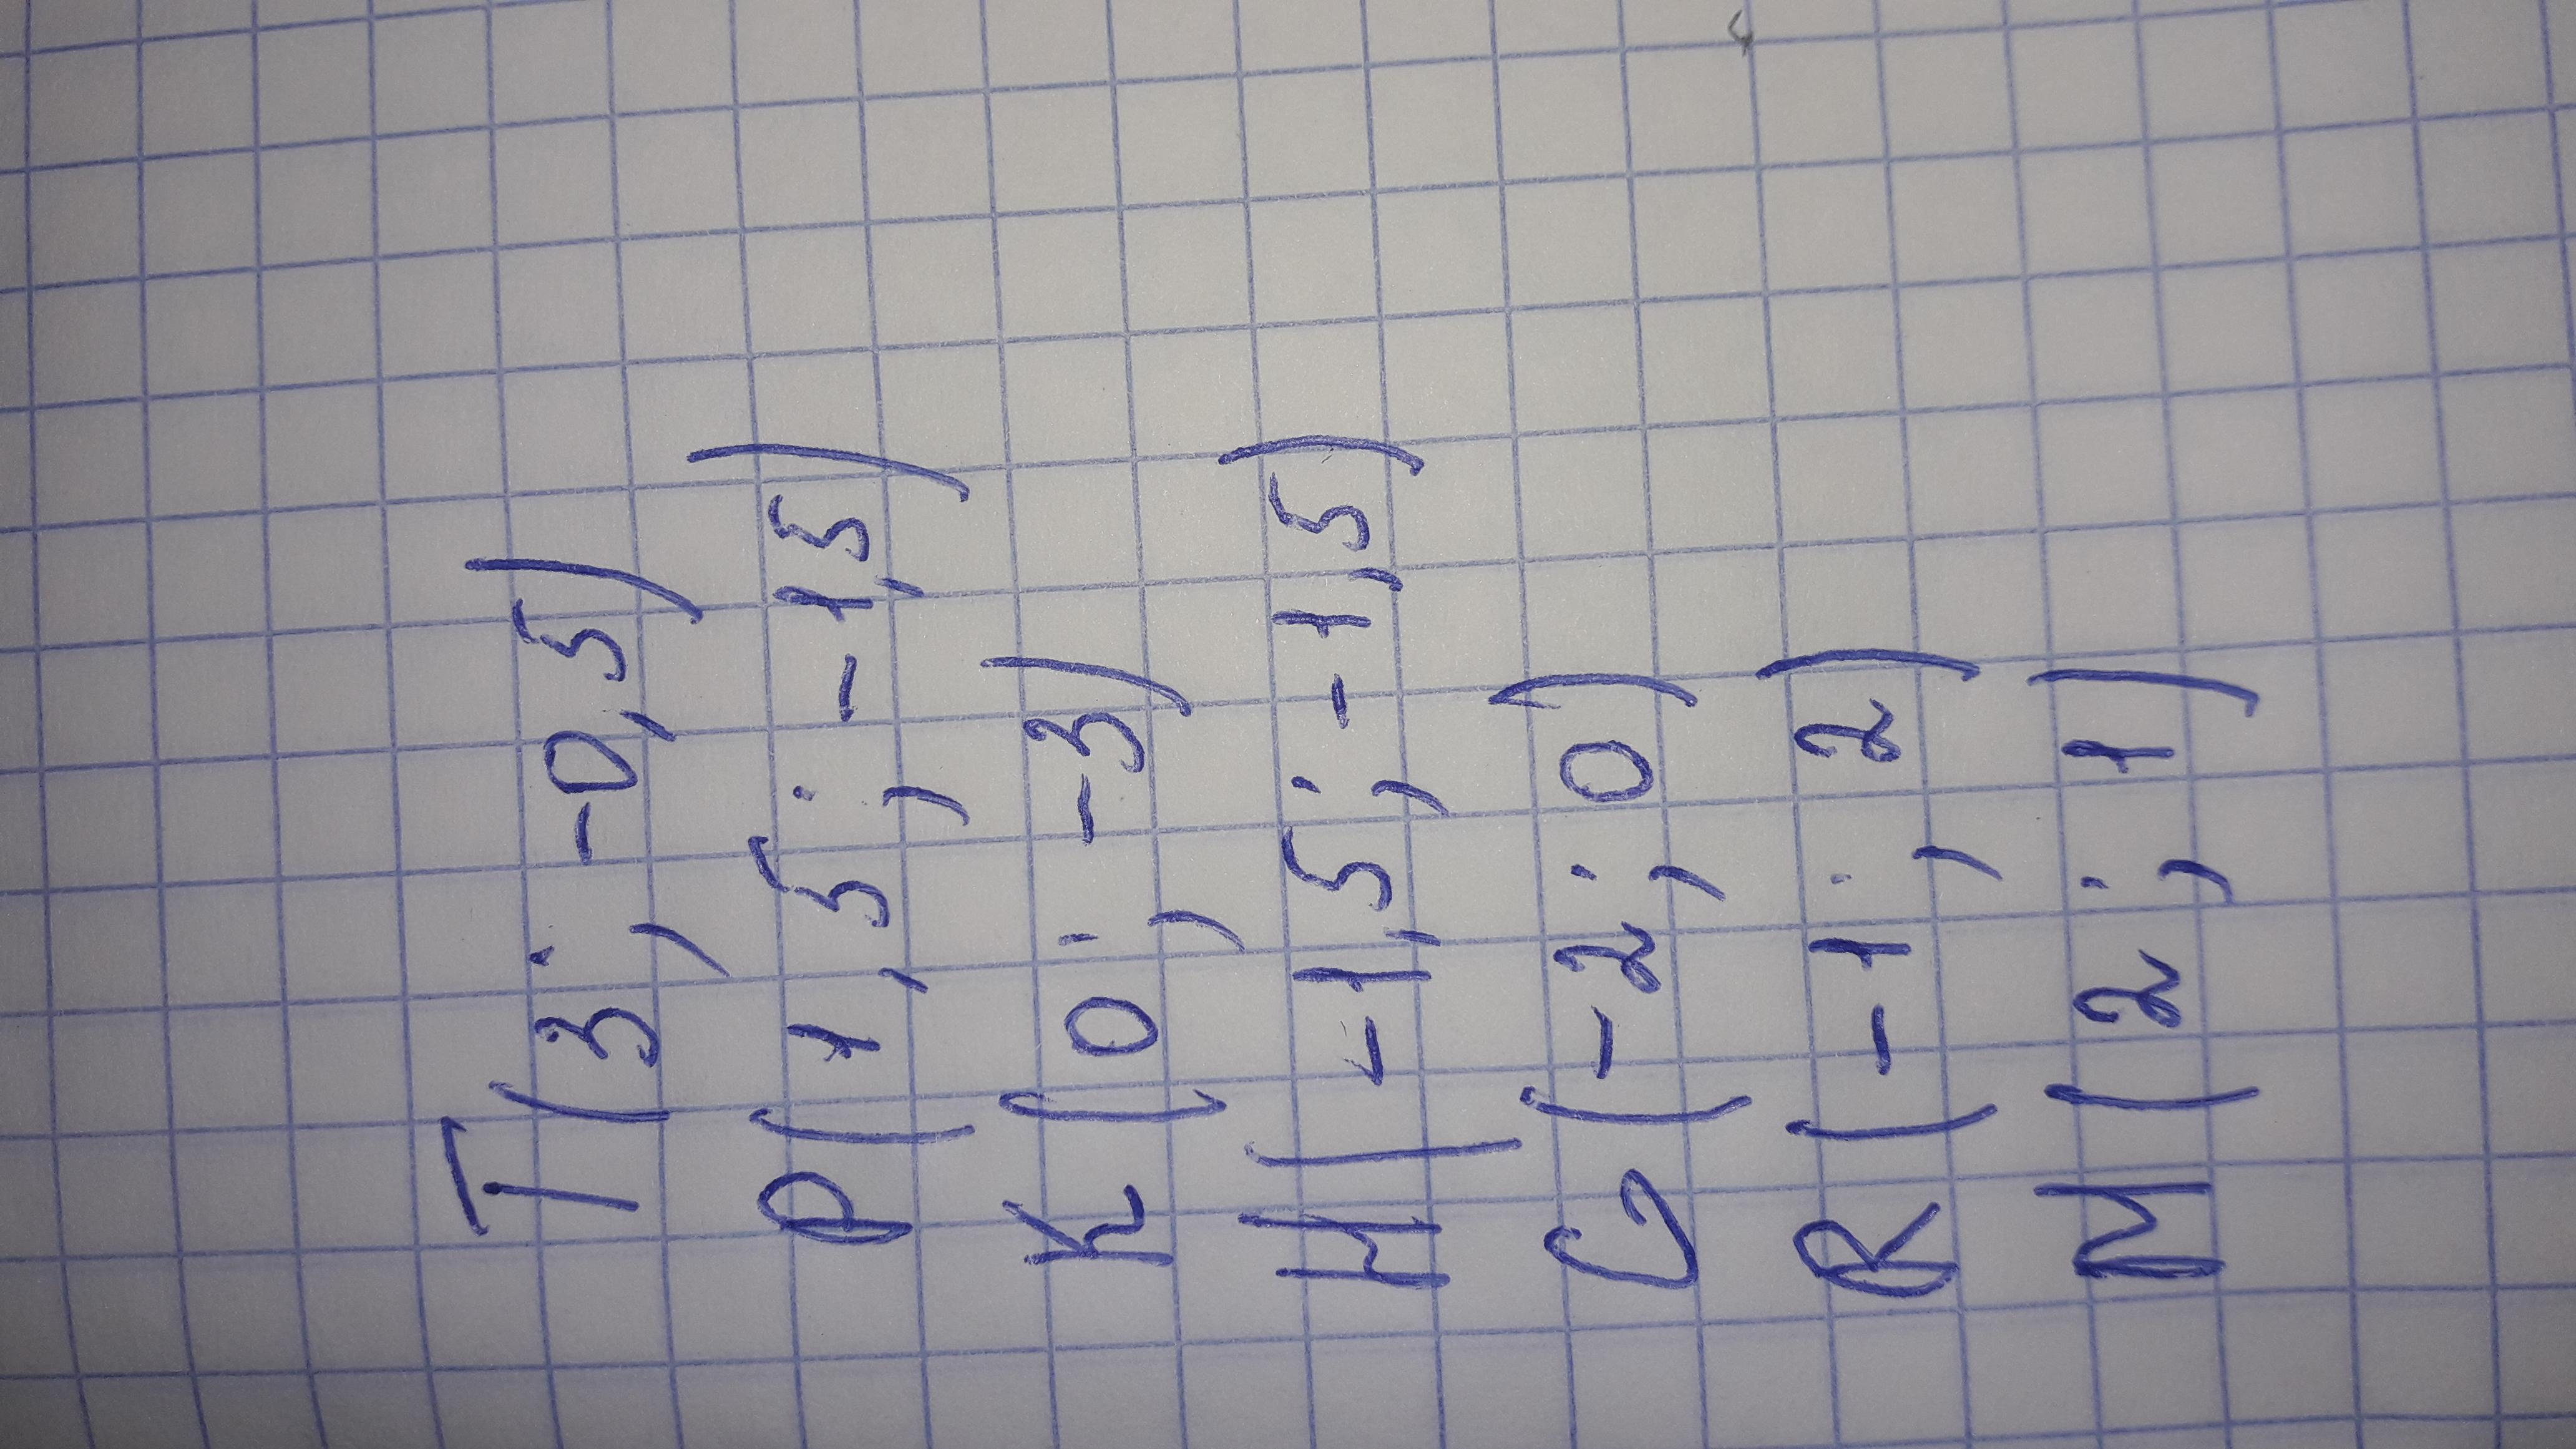 T(3; -0,5)
P(1,5; -1,5)
K(0; -3)
H(-1,5; -1,5)
C(-2; 0)
R(-1; 2)
M(2; 1)